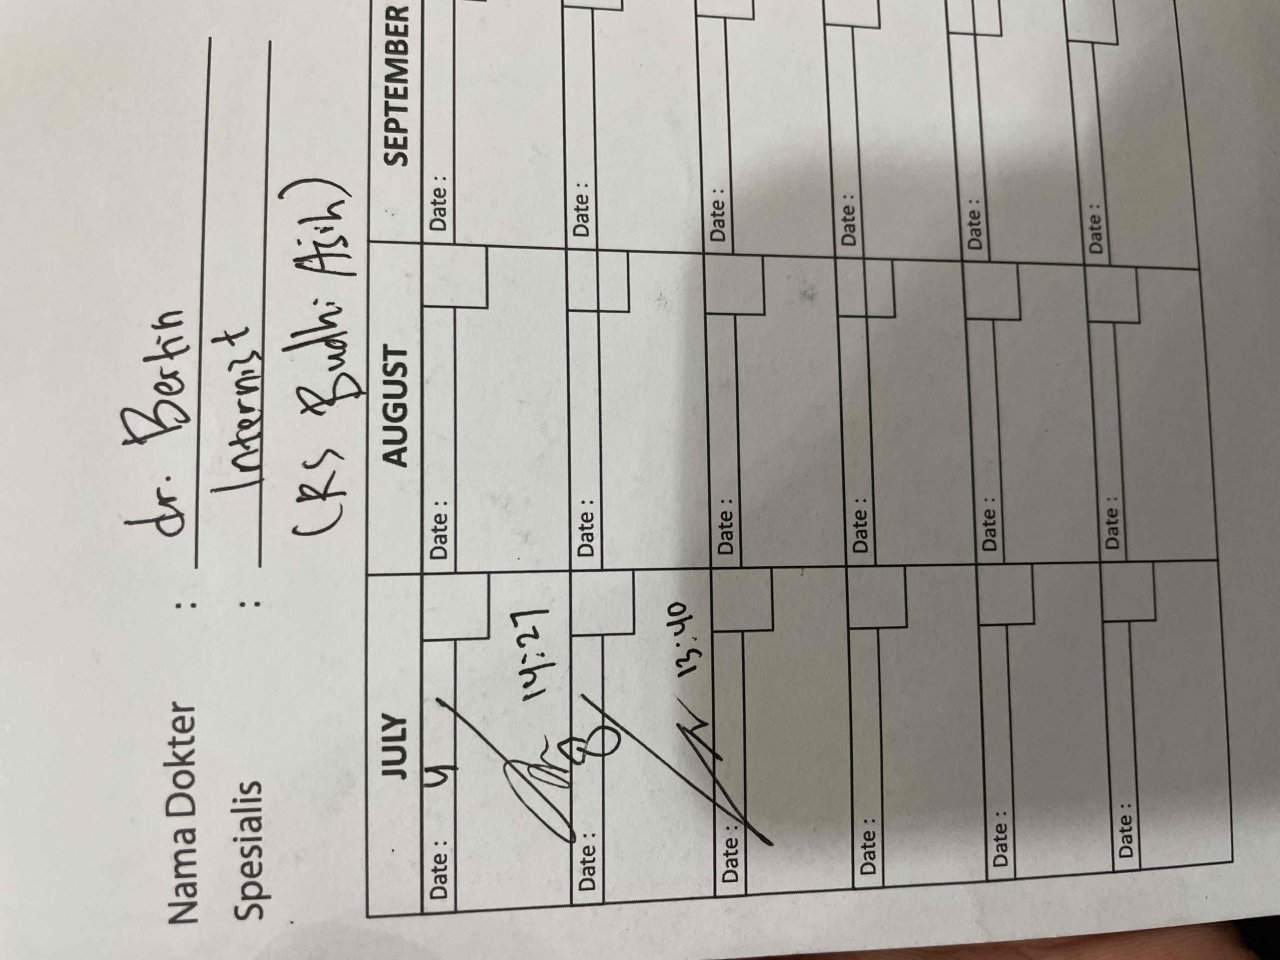 Nama Dokter : dr. Bertin
Spesialis : Internist
(RS Budhi Asih)
JULY AUGUST SEPTEMBER
Date : 4 Date : Date :
14:27
Date : 8 Date : Date :
13:40
Date : Date : Date :
Date : Date : Date :
Date : Date : Date :
Date : Date : Date :